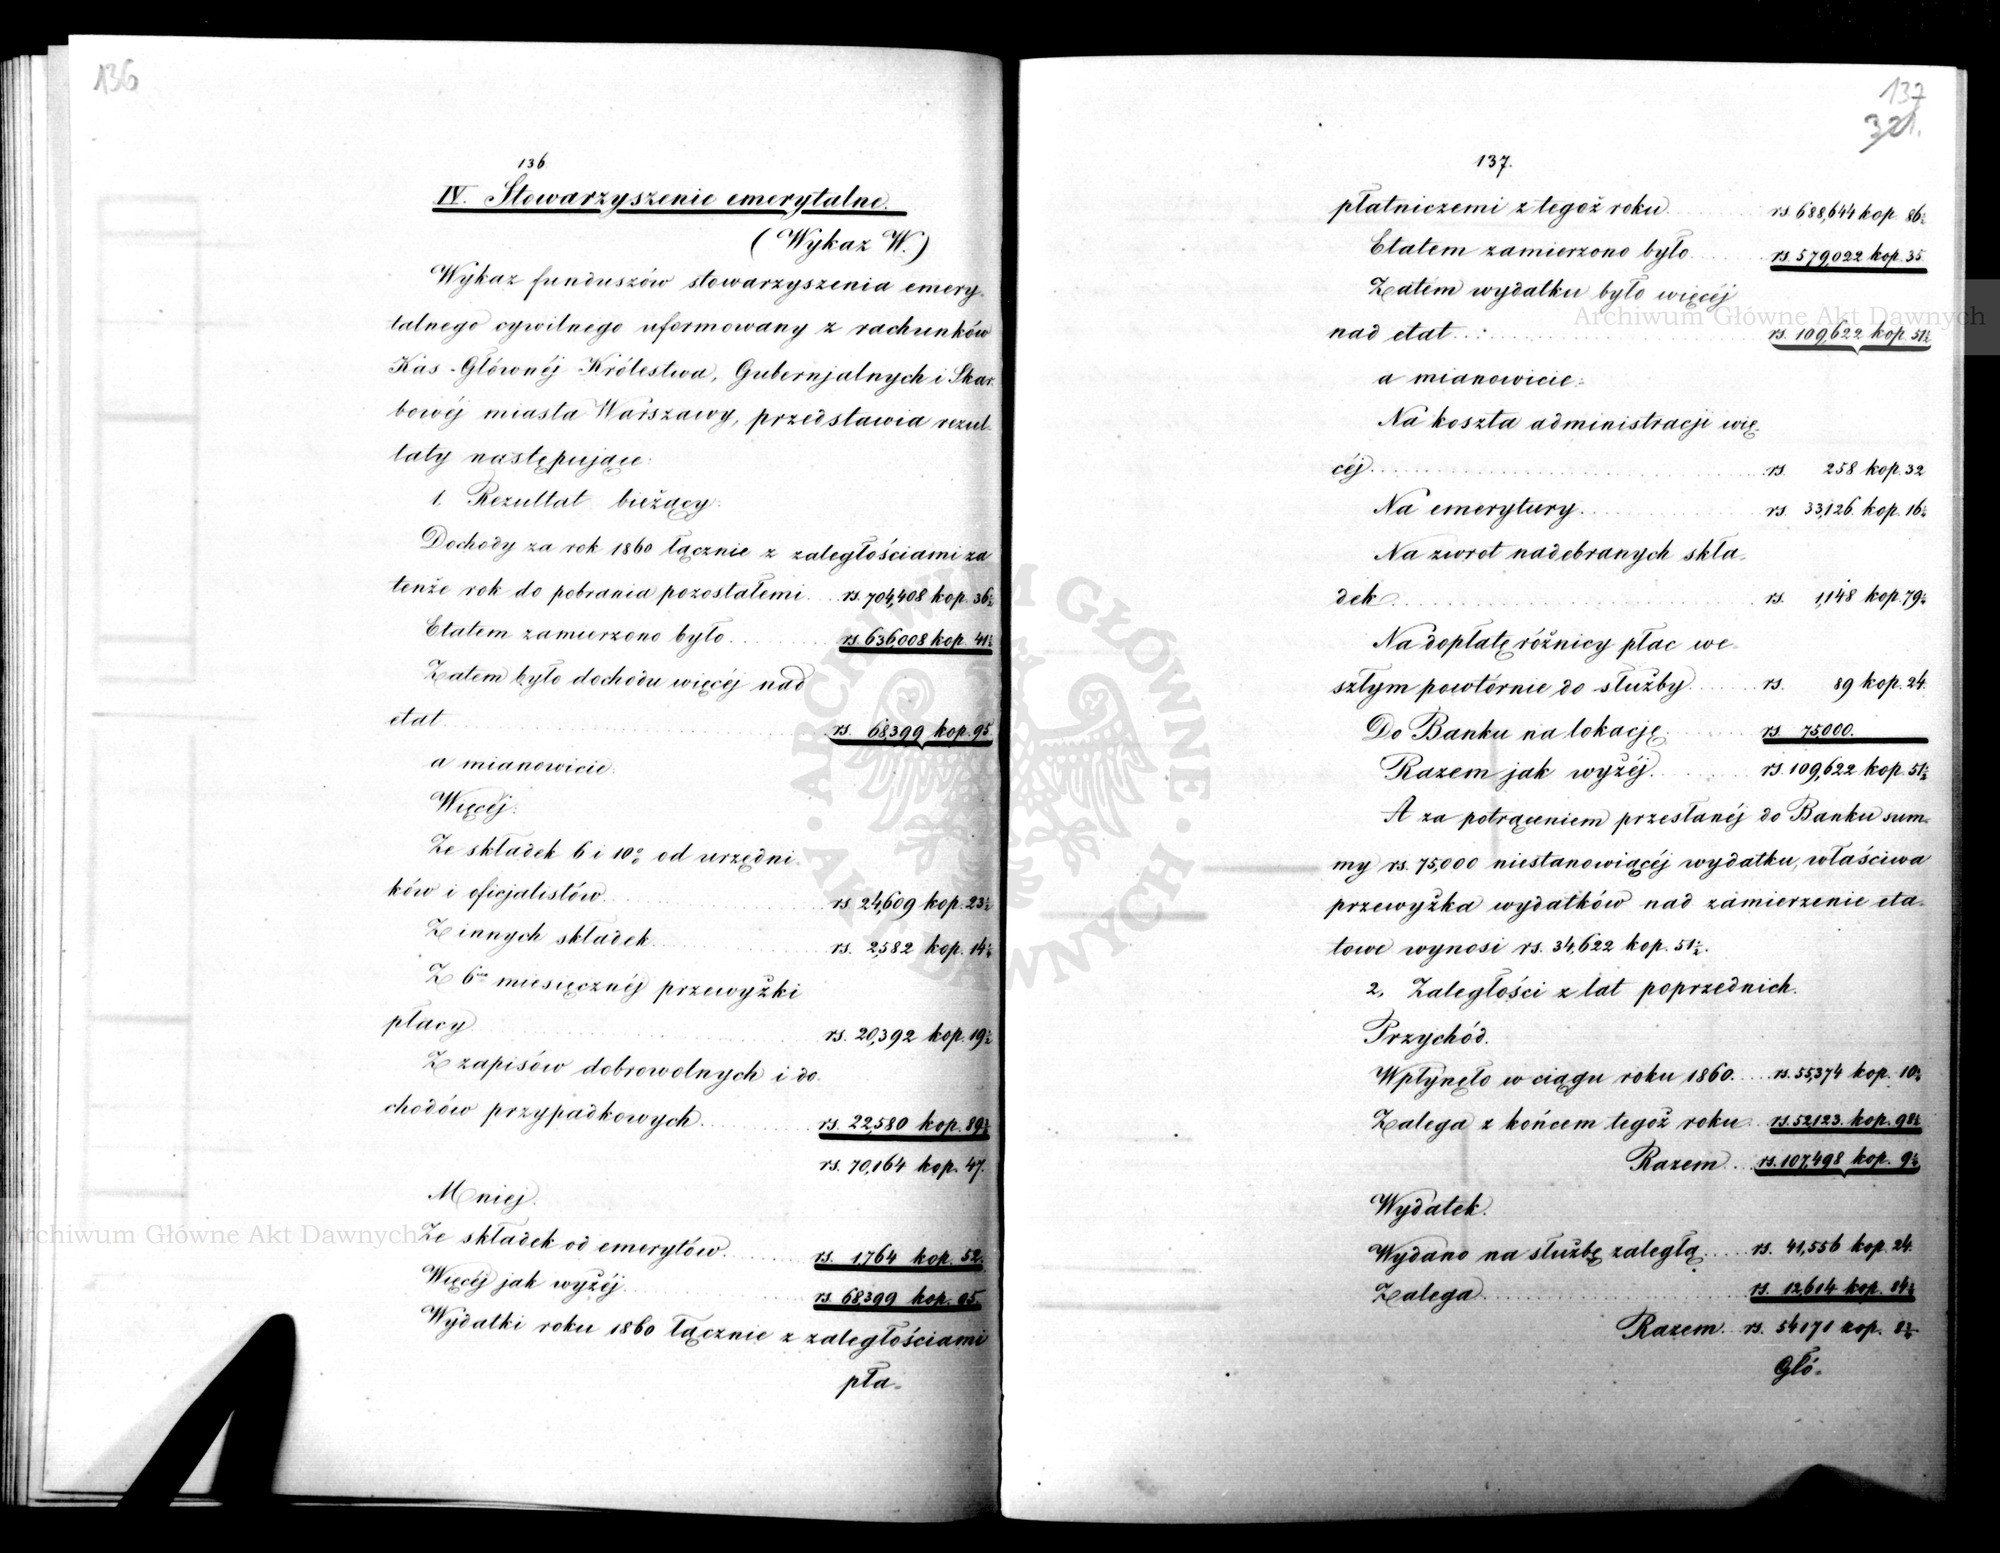 136
136
IV. Stowarzyszenie emerytalne.
(Wykaz W.)
Wykaz funduszów stowarzyszenia emery-
talnego cywilnego uformowany z rachunków
Kas Głównéj Królestwa, Gubernjalnych i Skar-
bowéj miasta Warszawy, przedstawia rezul-
taty następujące:
1. Rezultat bieżący:
Dochody za rok 1860 łącznie z zaległościami za
tenże rok do pobrania pozostałemi rs. 704,408 kop. 36½
Etatem zamierzono było rs. 636,008 kop. 41½
Zatem było dochodu więcéj nad
etat rs. 68,399 kop. 95.
a mianowicie:
Więcéj:
Ze składek 6 i 10% od urzędni-
ków i oficjalistów rs. 24,609 kop. 23½
Z innych składek rs. 2,582 kop. 14½
Z 6cio miesięcznéj przewyżki
płacy rs. 20,392 kop. 19½
Z zapisów dobrowolnych i do-
chodów przypadkowych rs. 22,580 kop. 89½
rs. 70,164 kop. 47.
Mniej.
Ze składek od emerytów rs. 1,764 kop. 52.
Więcéj jak wyżéj rs. 68,399 kop. 95.
Wydatki roku 1860 łącznie z zaległościami
pła-
137
321.
137.
płatniczemi z tegoż roku rs. 688,644 kop. 86½
Etatem zamierzono było rs. 579,022 kop. 35.
Zatém wydatku było więcéj
nad etat rs. 109,622 kop. 51½
a mianowicie:
Na koszta administracji wię-
céj rs. 258 kop. 32
Na emerytury rs. 33,126 kop. 16½
Na zwrot nadebranych skła-
dek rs. 1,148 kop. 79½
Na dopłatę różnicy płac we-
szłym powtórnie do służby rs. 89 kop. 24.
Do Banku na lokację rs. 75,000.
Razem jak wyżéj rs. 109,622 kop. 51½
A za potrąceniem przesłanéj do Banku sum-
my rs. 75,000 niestanowiącéj wydatku, właściwa
przewyżka wydatków nad zamierzenie eta-
towe wynosi rs. 34,622 kop. 51½.
2. Zaległości z lat poprzednich.
Przychód.
Wpłynęło w ciągu roku 1860. rs. 55,374 kop. 10½
Zalega z końcem tegoż roku rs. 52,123. kop. 98½
Razem rs. 107,498 kop. 9½
Wydatek.
Wydano na służbę zaległą rs. 41,556 kop. 24.
Zalega rs. 12,614 kop. 84½
Razem rs. 54,171 kop. 8½
Głó-
Archiwum Główne Akt Dawnych
Archiwum Główne Akt Dawnych
ARCHIWUM GŁÓWNE AKT DAWNYCH